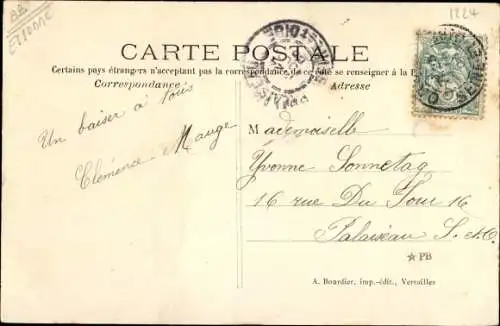 BB
ESSONNE
1224
CARTE POSTALE
Certains pays étrangers n'acceptant pas la correspondance de ce côté se renseigner à la
Correspondance
Adresse
Un baiser à tous
Clémence Mauge
Mademoiselle
Yvonne Sonnetag
16 rue Du Four 16
Palaiseau S. et O.
PB
A. Bourdier, imp.-édit., Versailles